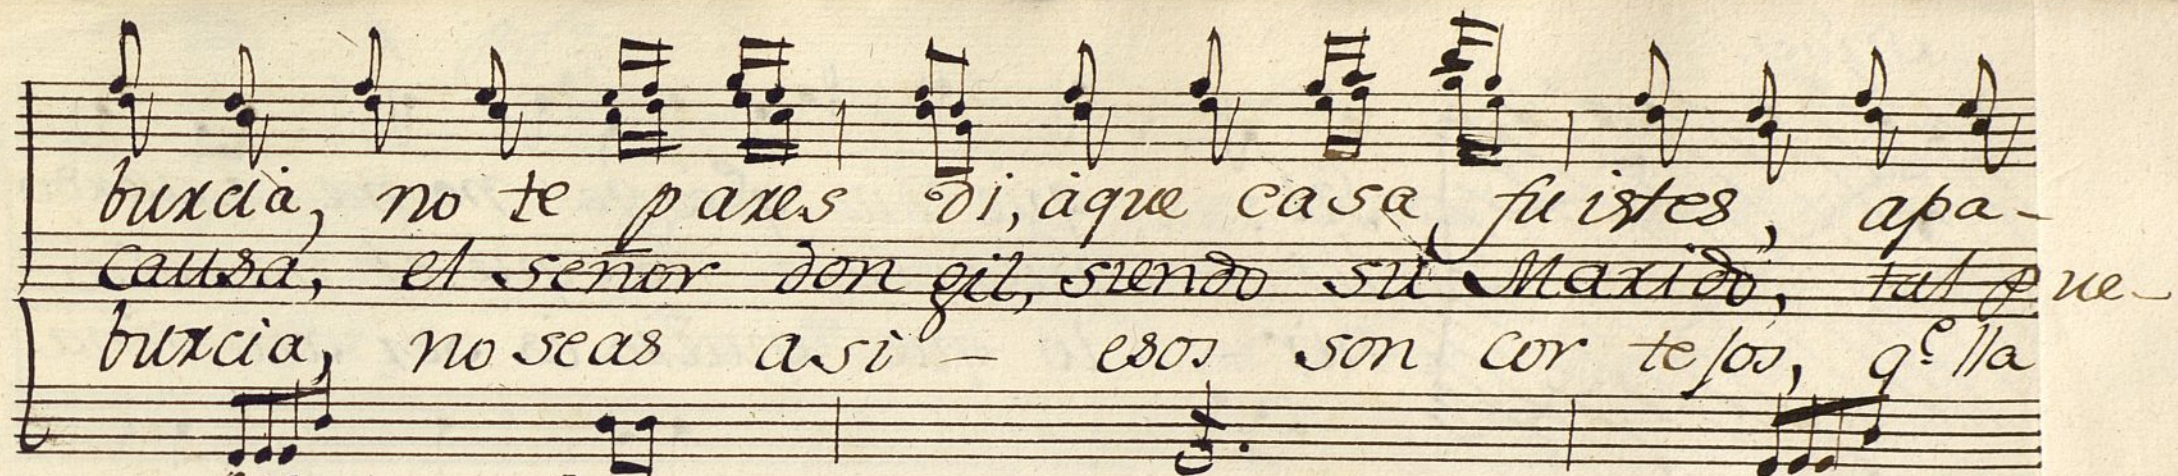 burcia, no te pares di, aque casa fuistes, apa-
causa, el señor don gil, siendo su Marido, tal pue-
burcia, no seas asi - esos son cor tejos, q.e lla